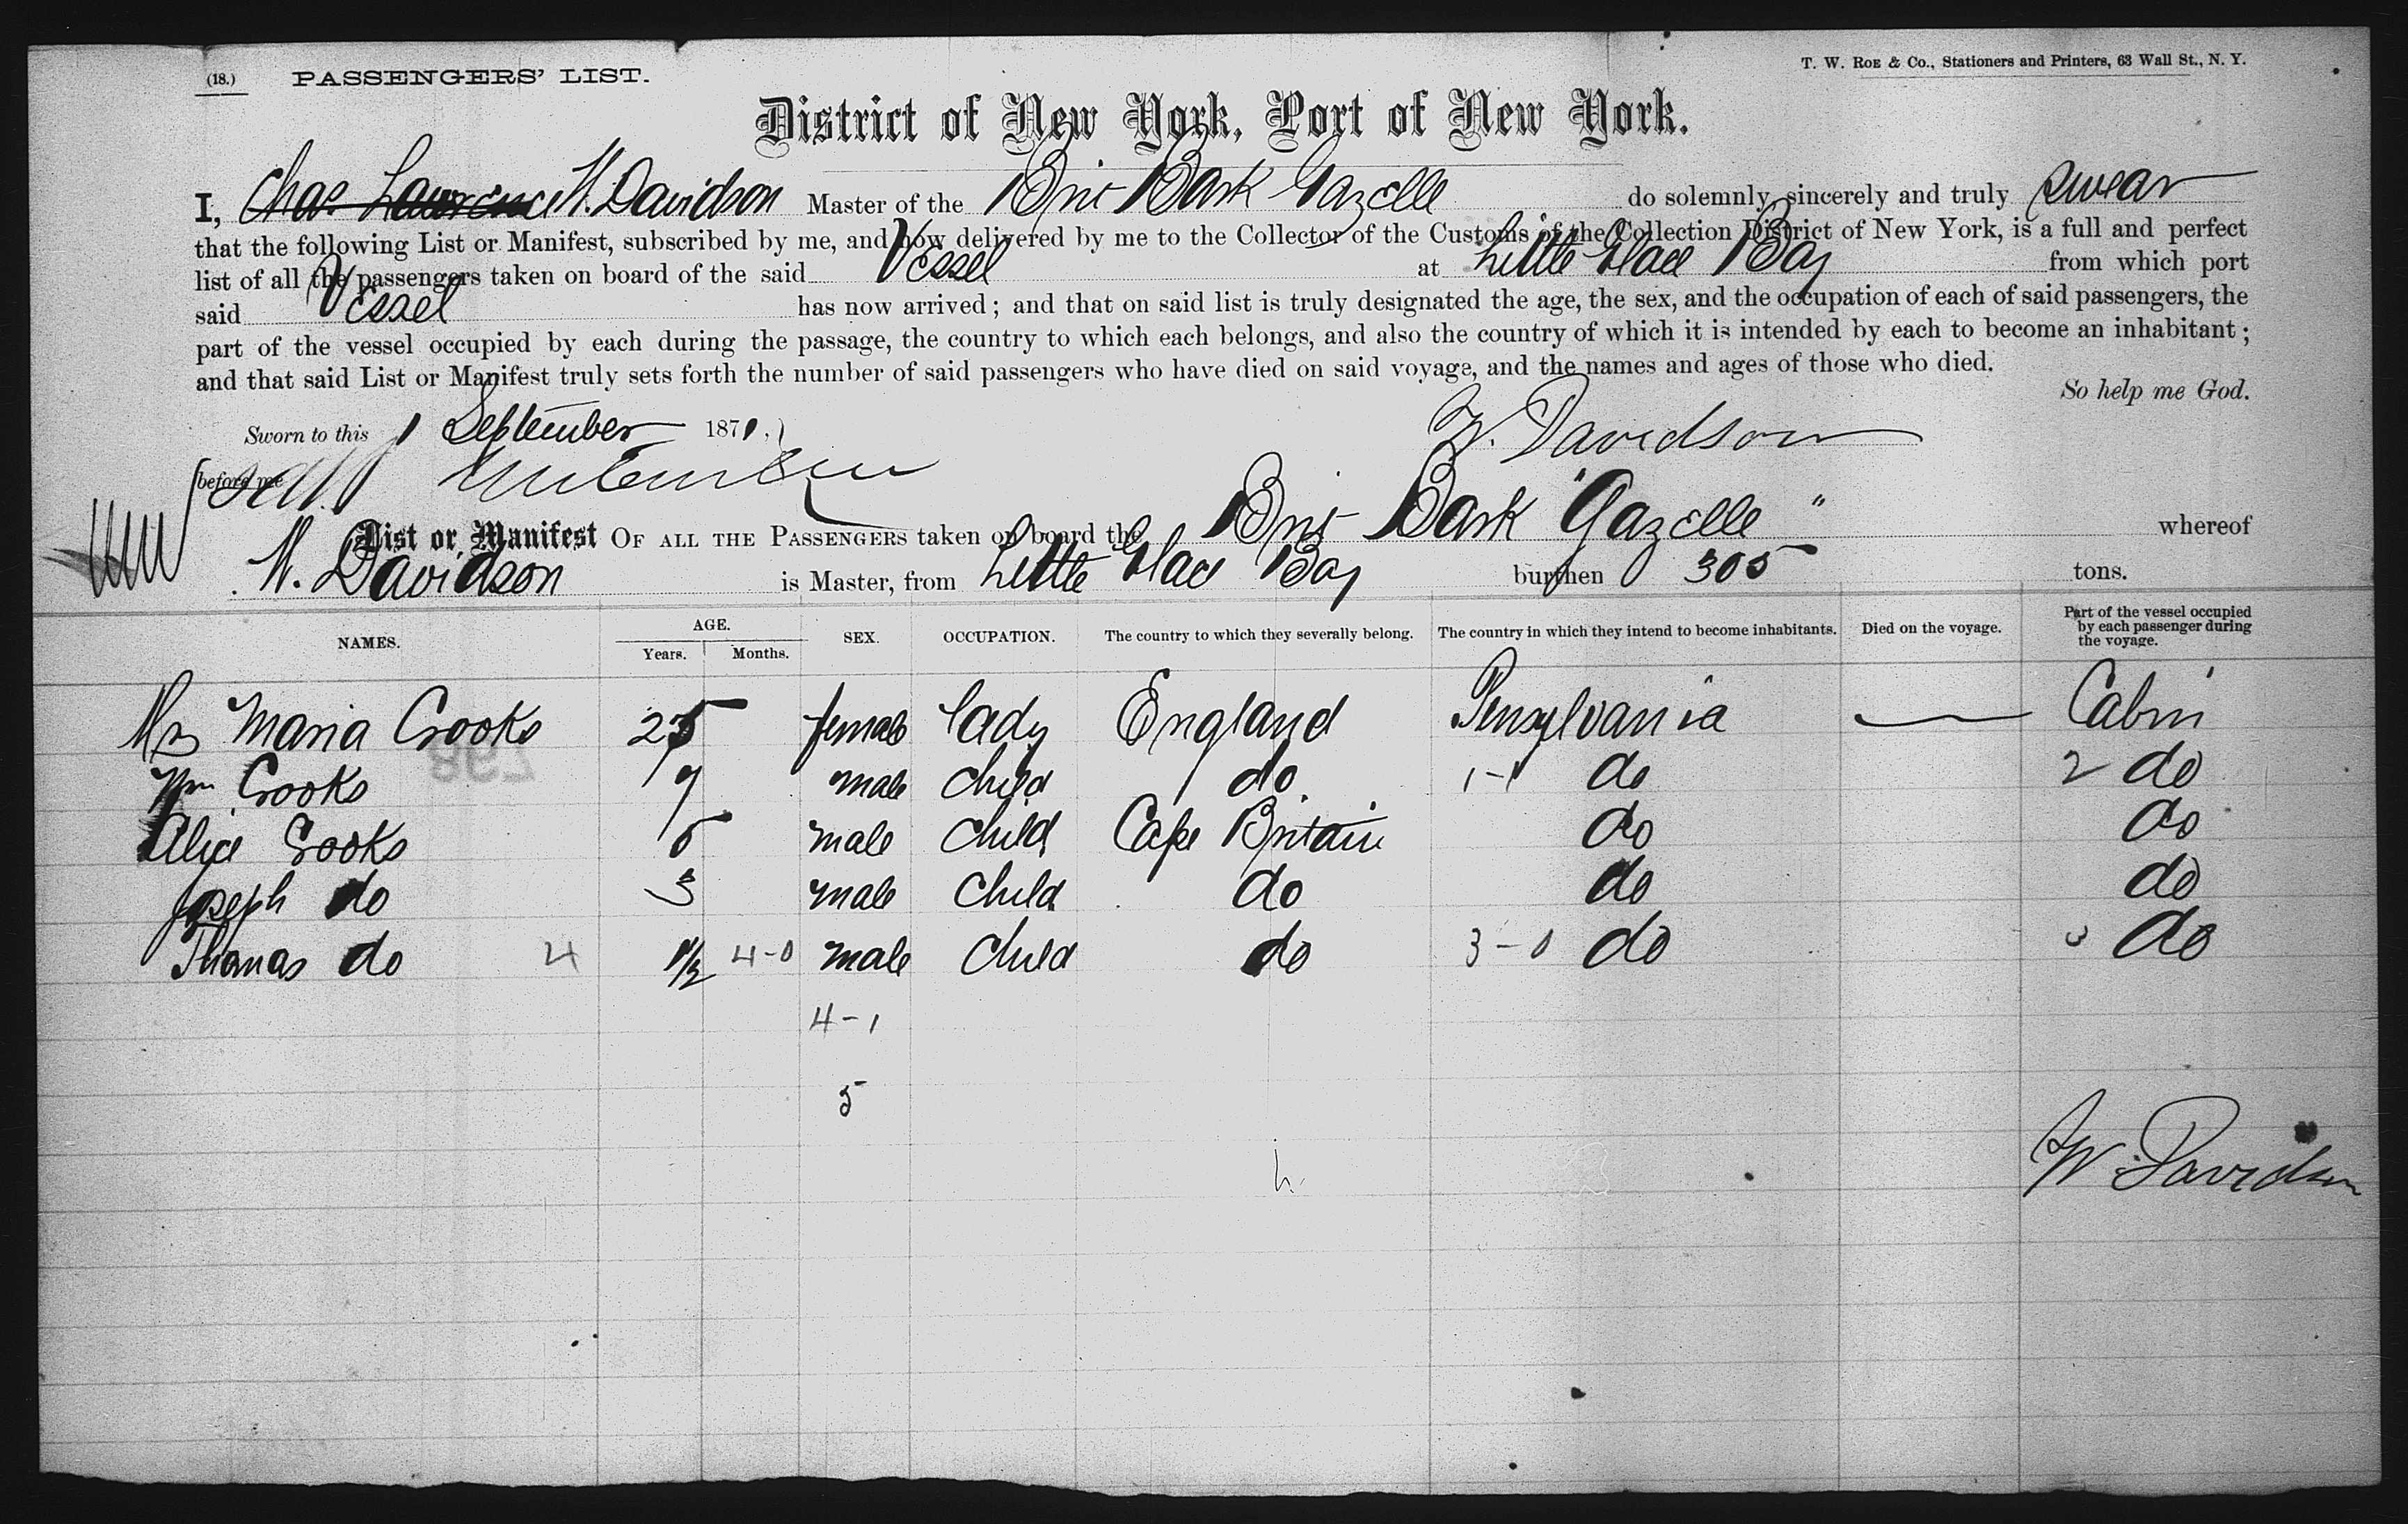 (18.) PASSENGERS' LIST. T. W. ROE & Co., Stationers and Printers, 63 Wall St., N. Y.
District of New York, Port of New York.
I, Chas Lawrence W. Davidson Master of the Brit Bark Gazelle do solemnly, sincerely and truly swear
that the following List or Manifest, subscribed by me, and now delivered by me to the Collector of the Customs of the Collection District of New York, is a full and perfect
list of all the passengers taken on board of the said Vessel at Little Glace Bay from which port
said Vessel has now arrived; and that on said list is truly designated the age, the sex, and the occupation of each of said passengers, the
part of the vessel occupied by each during the passage, the country to which each belongs, and also the country of which it is intended by each to become an inhabitant;
and that said List or Manifest truly sets forth the number of said passengers who have died on said voyage, and the names and ages of those who died.
So help me God.
Sworn to this 1 September 1871.
W. Davidson
before me
List or Manifest OF ALL THE PASSENGERS taken on board the Brit Bark "Gazelle" whereof
W. Davidson is Master, from Little Glace Bay burthen 305 tons.
NAMES. AGE. Years. Months. SEX. OCCUPATION. The country to which they severally belong. The country in which they intend to become inhabitants. Died on the voyage. Part of the vessel occupied by each passenger during the voyage.
Mrs Maria Crooks 25 female lady England Pensylvania — Cabin
Wm Crooks 7 male child do 1-1 do 2 do
Alice Crooks 5 male child Cape Britain do do
Joseph do 3 male child do do do
Thomas do 4 1/2 4-0 male child do 3-0 do 3 do
4-1
5
W Davidson